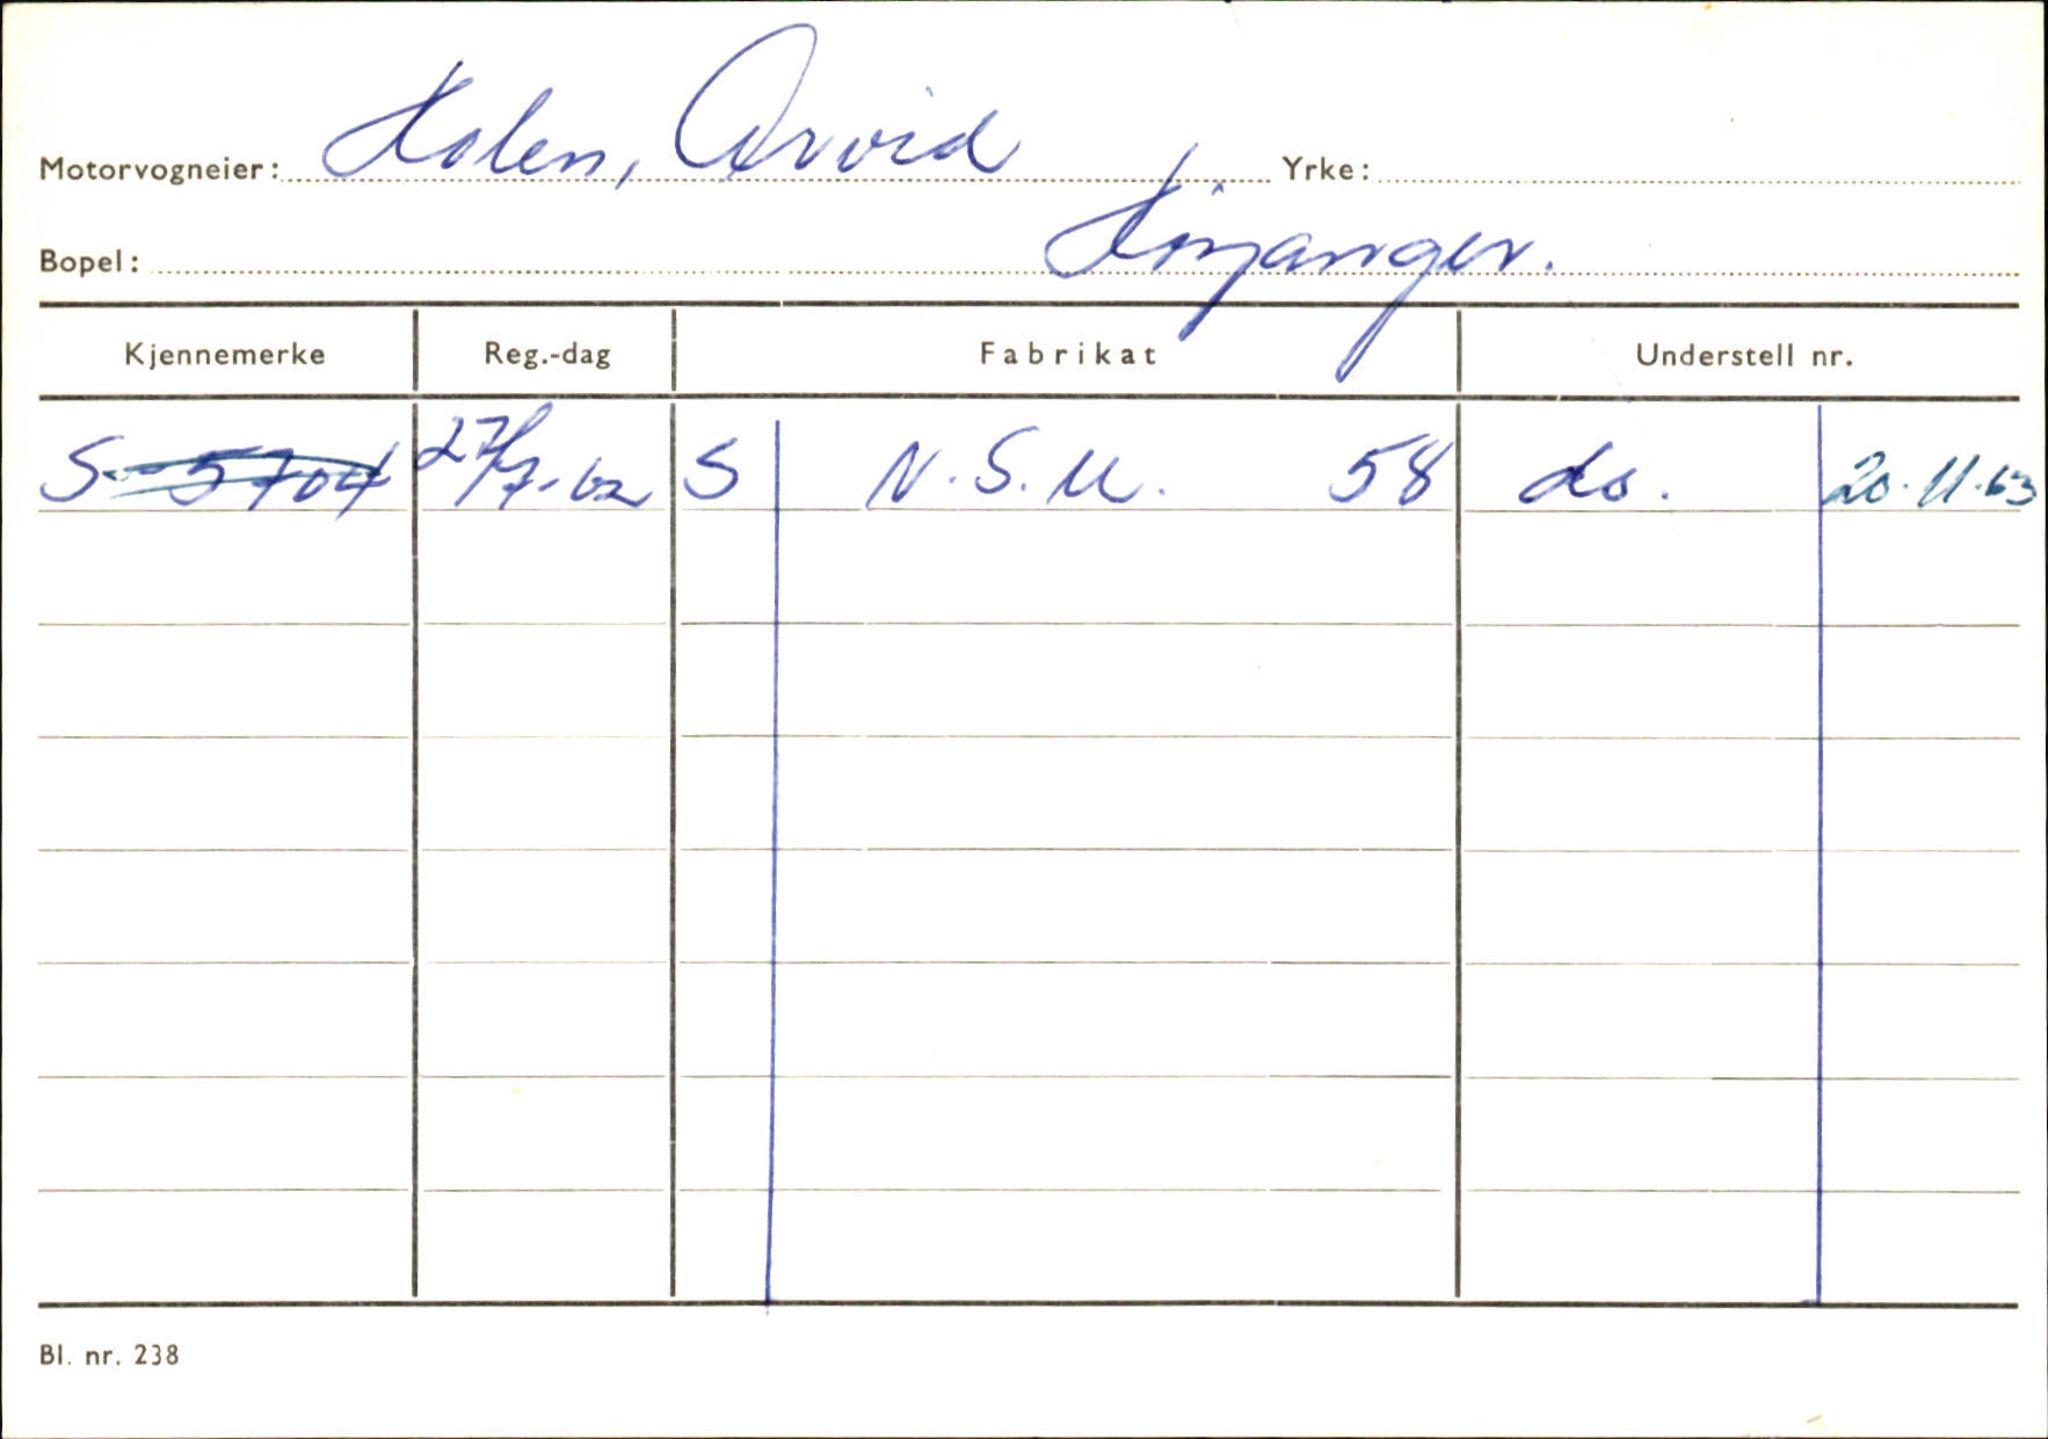 Motorvogneier: Holen, Arvid Yrke:
Bopel: Høyanger.
Kjennemerke Reg.-dag Fabrikat Understell nr.
S-5704 27/7-62 S N.S.U. 58 ds. 20.11.63
Bl. nr. 238